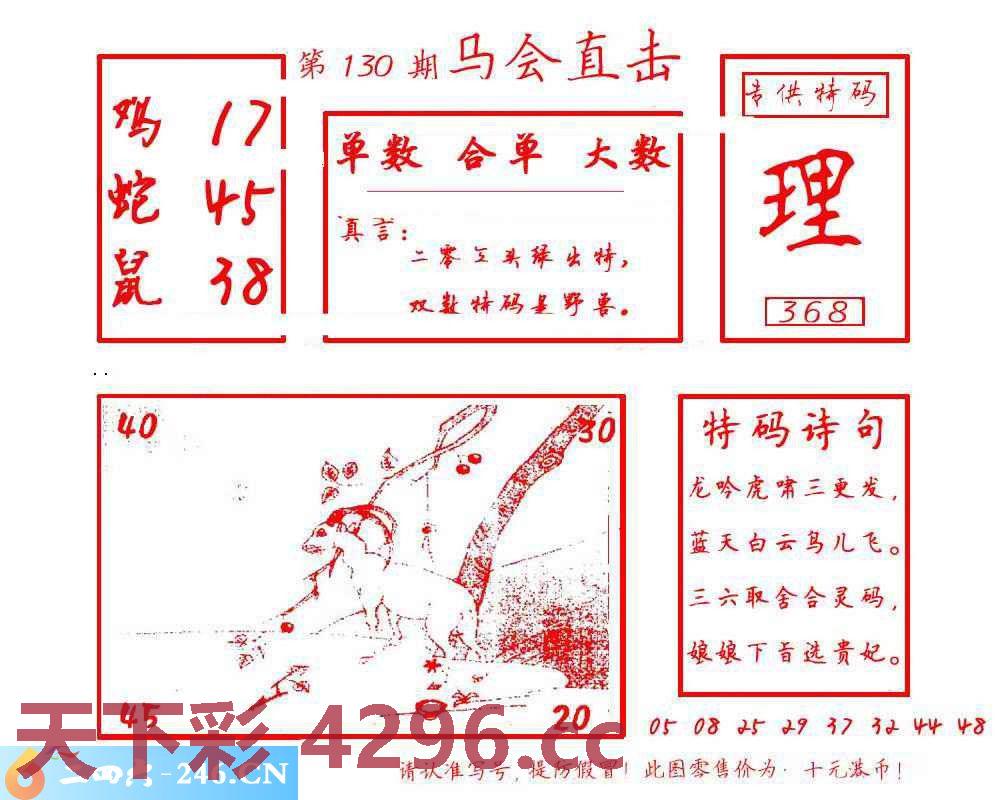 第130期 马会直击
鸡 17
蛇 45
鼠 38
单数 合单 大数
真言：
二零三头绿出特，
双数特码是野兽。
专供特码
理
368
40
30
45
20
特码诗句
龙吟虎啸三更发，
蓝天白云鸟儿飞。
三六取舍合灵码，
娘娘下旨选贵妃。
05 08 25 29 37 32 44 48
天下彩 4296.cc
-246.CN
请认准写号，提防假冒！此图零售价为：十元港币！